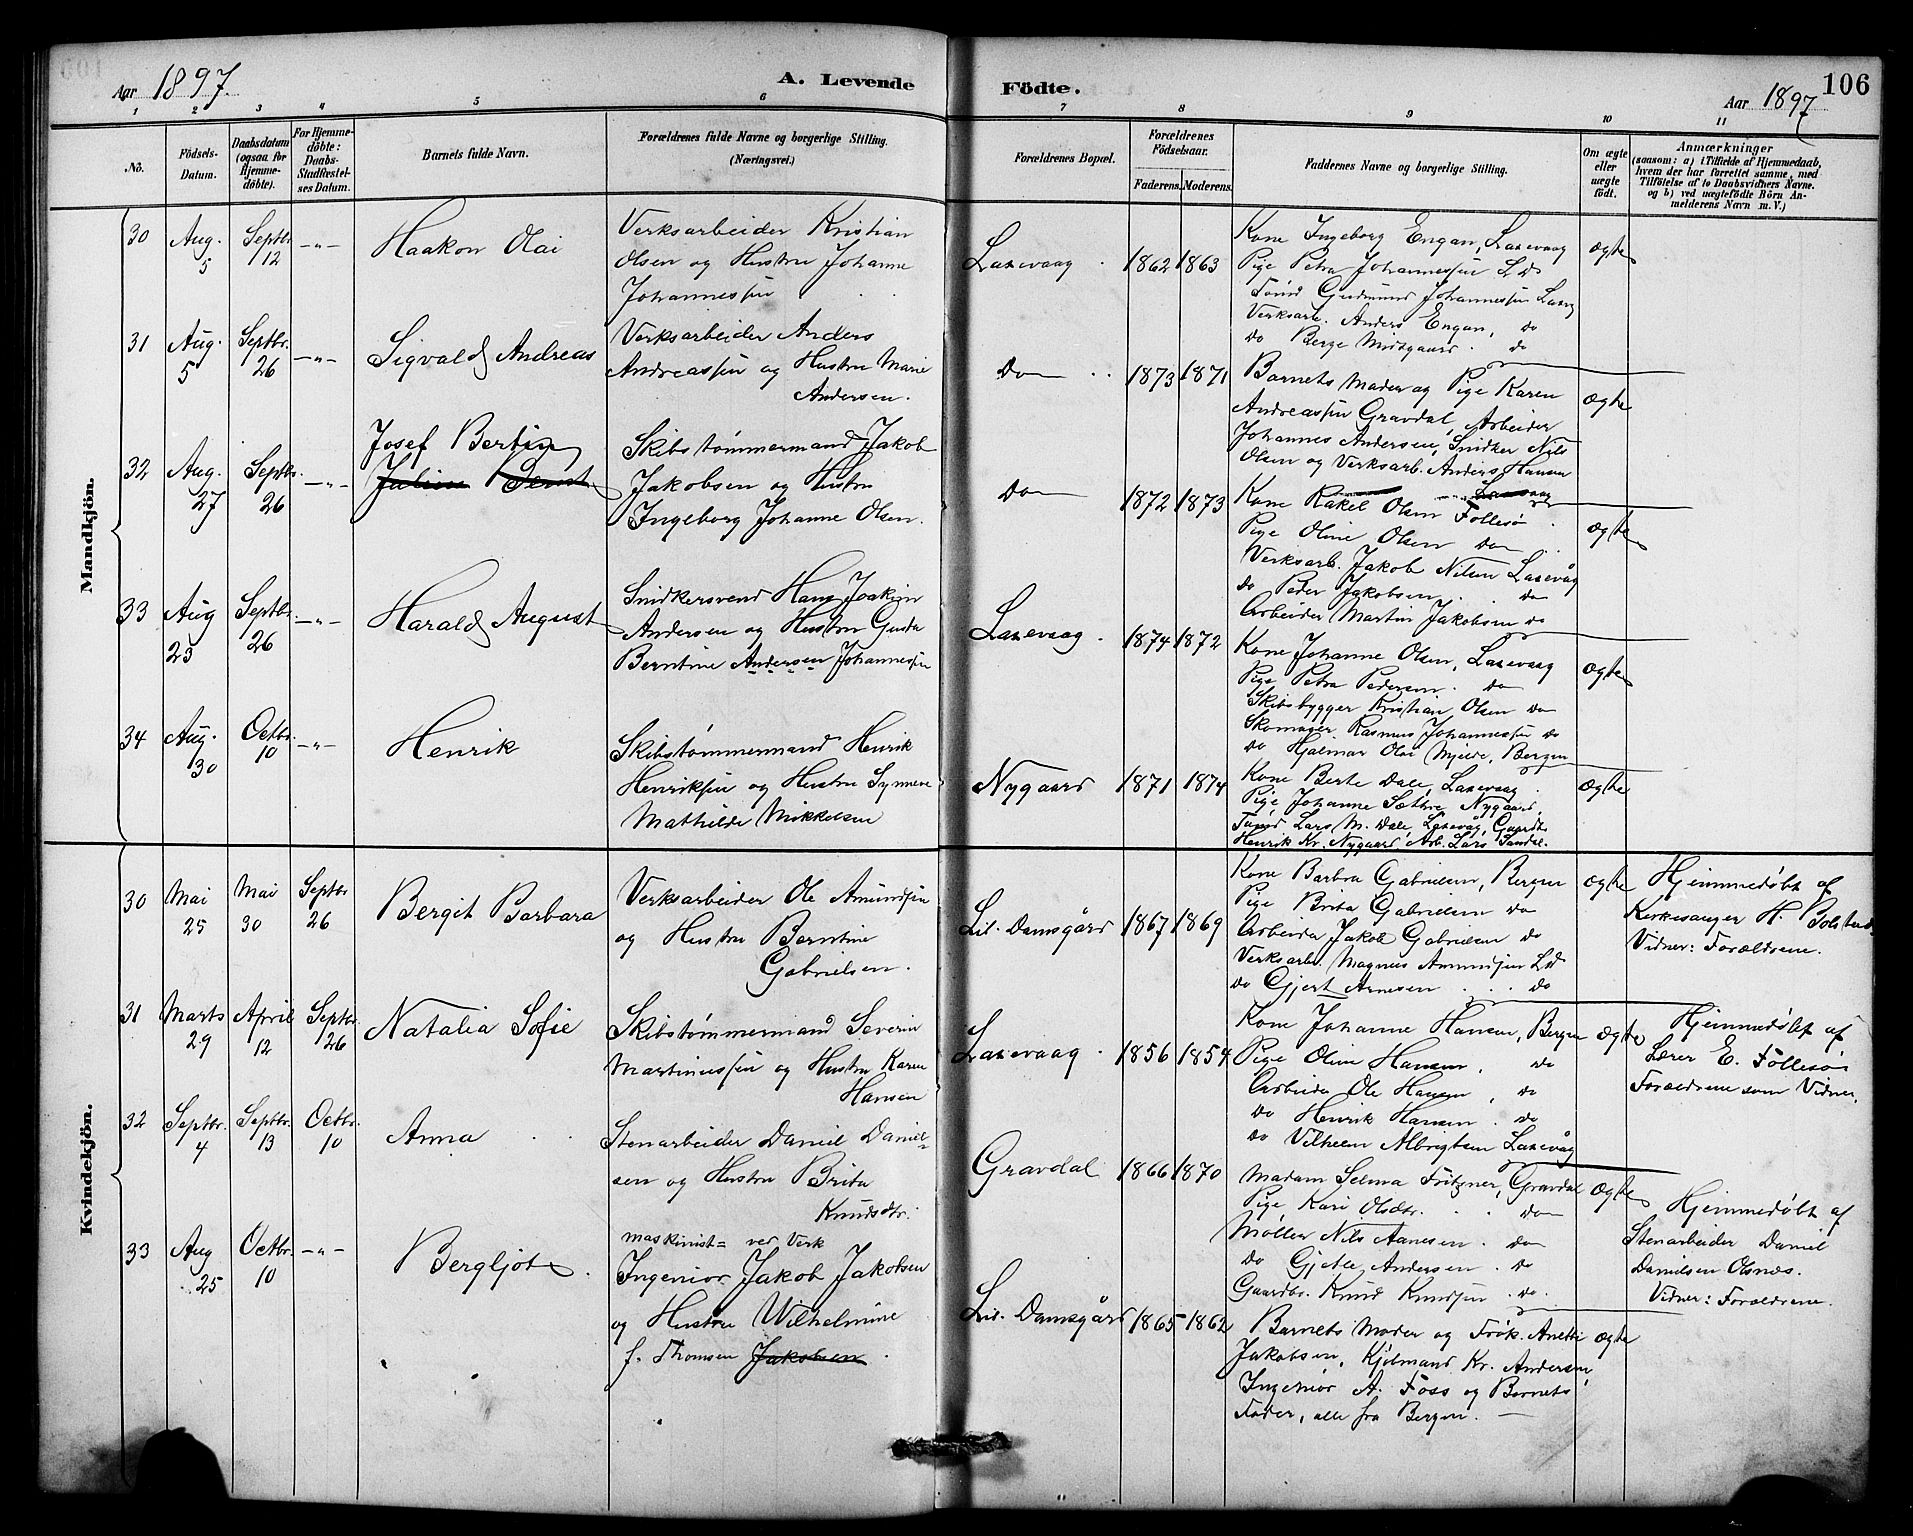 Aar 1897.
A. Levende
Födte.
106
Aar 1897
1 2 3 4 5 6 7 8 9 10 11
No.
Födsels-Datum.
Daabsdatum (ogsaa for Hjemme-döbte).
For Hjemme-döbte: Daabs-Stadfæstelses Datum.
Barnets fulde Navn.
Forældrenes fulde Navne og borgerlige Stilling.
(Næringsvei.)
Forældrenes Bopæl.
Forældrenes Födselsaar.
Faderens. Moderens.
Faddernes Navne og borgerlige Stilling.
Om ægte eller uægte födt.
Anmærkninger
(saasom: a) i Tilfælde af Hjemmedaab,
hvem der har forrettet samme, med
Tilföielse af to Daabsvidners Navne.
og b) ved uægtefödte Börn An-
melderens Navn m. V.)
Mandkjön.
30 Aug. 5 Septbr. 12 -"- Haakon Olai
Verksarbeider Kristian
Olsen og Hustru Johanne
Johannessen
Laxevaag. 1862 1863
Kone Ingeborg Engan, Laxevaag
Pige Petra Johannessen L. Do
Gudmund Johannessen Laxvg
Verksarb. Anders Engan, do
do Berge Midtgaard. do
ægte
31 Aug. 5 Septbr. 26 -"- Sigvald Andreas
Verksarbeider Anders
Andreassen og Hustru Marie
Andersen.
Do 1873 1871
Barnets Moder og Pige Karen
Andreassen Gravdal, Arbeider
Johannes Andersen, Snidker Nils
Olsen og Verksarb. Anders Hansen
ægte
32 Aug. 27 Septbr. 26 -"- Josef Bertin
Skibstømmermand Jakob
Jakobsen og Hustru
Ingeborg Johanne Olsen.
Do 1872 1873
Kone Rakel Olsen Follesø
Pige Oline Olsen Do
Verksarb. Jakob Nilsen Laxevåg
do Peder Jakobsen. do
Arbeider Martin Jakobsen do
ægte
33 Aug 23 Septbr. 26 -"- Harald August
Snidkersvend Hans Joakim
Andersen og Hustru Gusta
Berntine Andersen Johannessen
Laxevaag. 1874 1872
Kone Johanne Olsen, Laxevaag
Pige Petra Pedersen. do
Skibsbygger Kristian Olsen do
Skomager Rasmus Johannessen do
do Hjalmar Olai Mjelde, Bergen
ægte
34 Aug. 30 Octbr. 10 -"- Henrik
Skibstømmermand Henrik
Henriksen og Hustru Synneve
Mathilde Mikkelsen
Nygaard 1871 1874
Kone Berte Dale, Laxevaag
Pige Johanne Sæthre Nygaard,
Lars M. Dale, Laxevag, Gaardb.
Henrik Kr. Nygaard, Arb. Lars Sandal.
ægte
Kvindekjön.
30 Mai 25 Mai 30 Septbr 26 Bergit Barbara
Verksarbeider Ole Amundsen
og Hustru Berntine
Gabrielsen.
Lil. Damsgård 1867 1869
Kone Barbra Gabrielsen, Bergen
Pige Brita Gabrielsen do
Arbeider Jakob Gabrielsen do
Verksarb. Magnus Amundsen L.d.
do Gjert Arnesen. do
ægte
Hjemmedøbt af
Kirkesanger H. Bolstad.
Vidner: Forældrene.
31 Marts 29 April 12 Septbr. 26 Natalia Sofie
Skibstømmermand Severin
Martinussen og Hustru Karen
Hansen
Laxevaag. 1856 1854
Kone Johanne Hansen, Bergen
Pige Oline Hansen, do
Arbeider Ole Hansen, do
do Henrik Hansen. do
do Vilhelm Albrigtsen Laxevåg
ægte
Hjemmedøbt af
Lærer E. Follesø
Forældrene som Vidner.
32 Septbr. 4 Septbr. 13 Octbr. 10 Anna
Stenarbeider Daniel Daniel-
sen og Hustru Brita
Knudsdtr.
Gravdal 1866 1870
Madam Selma Fritzner, Gravdal
Pige Kari Olsdtr. do
Møller Nils Aanesen. do
do Gjetle Andersen. do
Gaardbr. Knud Knudsen. do.
ægte
Hjemmedøbt af
Stenarbeider Daniel
Danielsen Olsnes.
Vidner: Forældrene.
33 Aug 25 Octbr. 10 -"- Bergljot
maskinist ved Verk
Ingeniør Jakob Jakobsen
og Hustru Wilhelmine
f. Thomsen Jakobsen.
Lil. Damsgård 1865 1862
Barnets Moder og Frøk. Anette
Jakobsen, Kjølmand Kr. Andersen,
Ingeniør A. Foss og Barnets
Fader, alle fra Bergen.
ægte